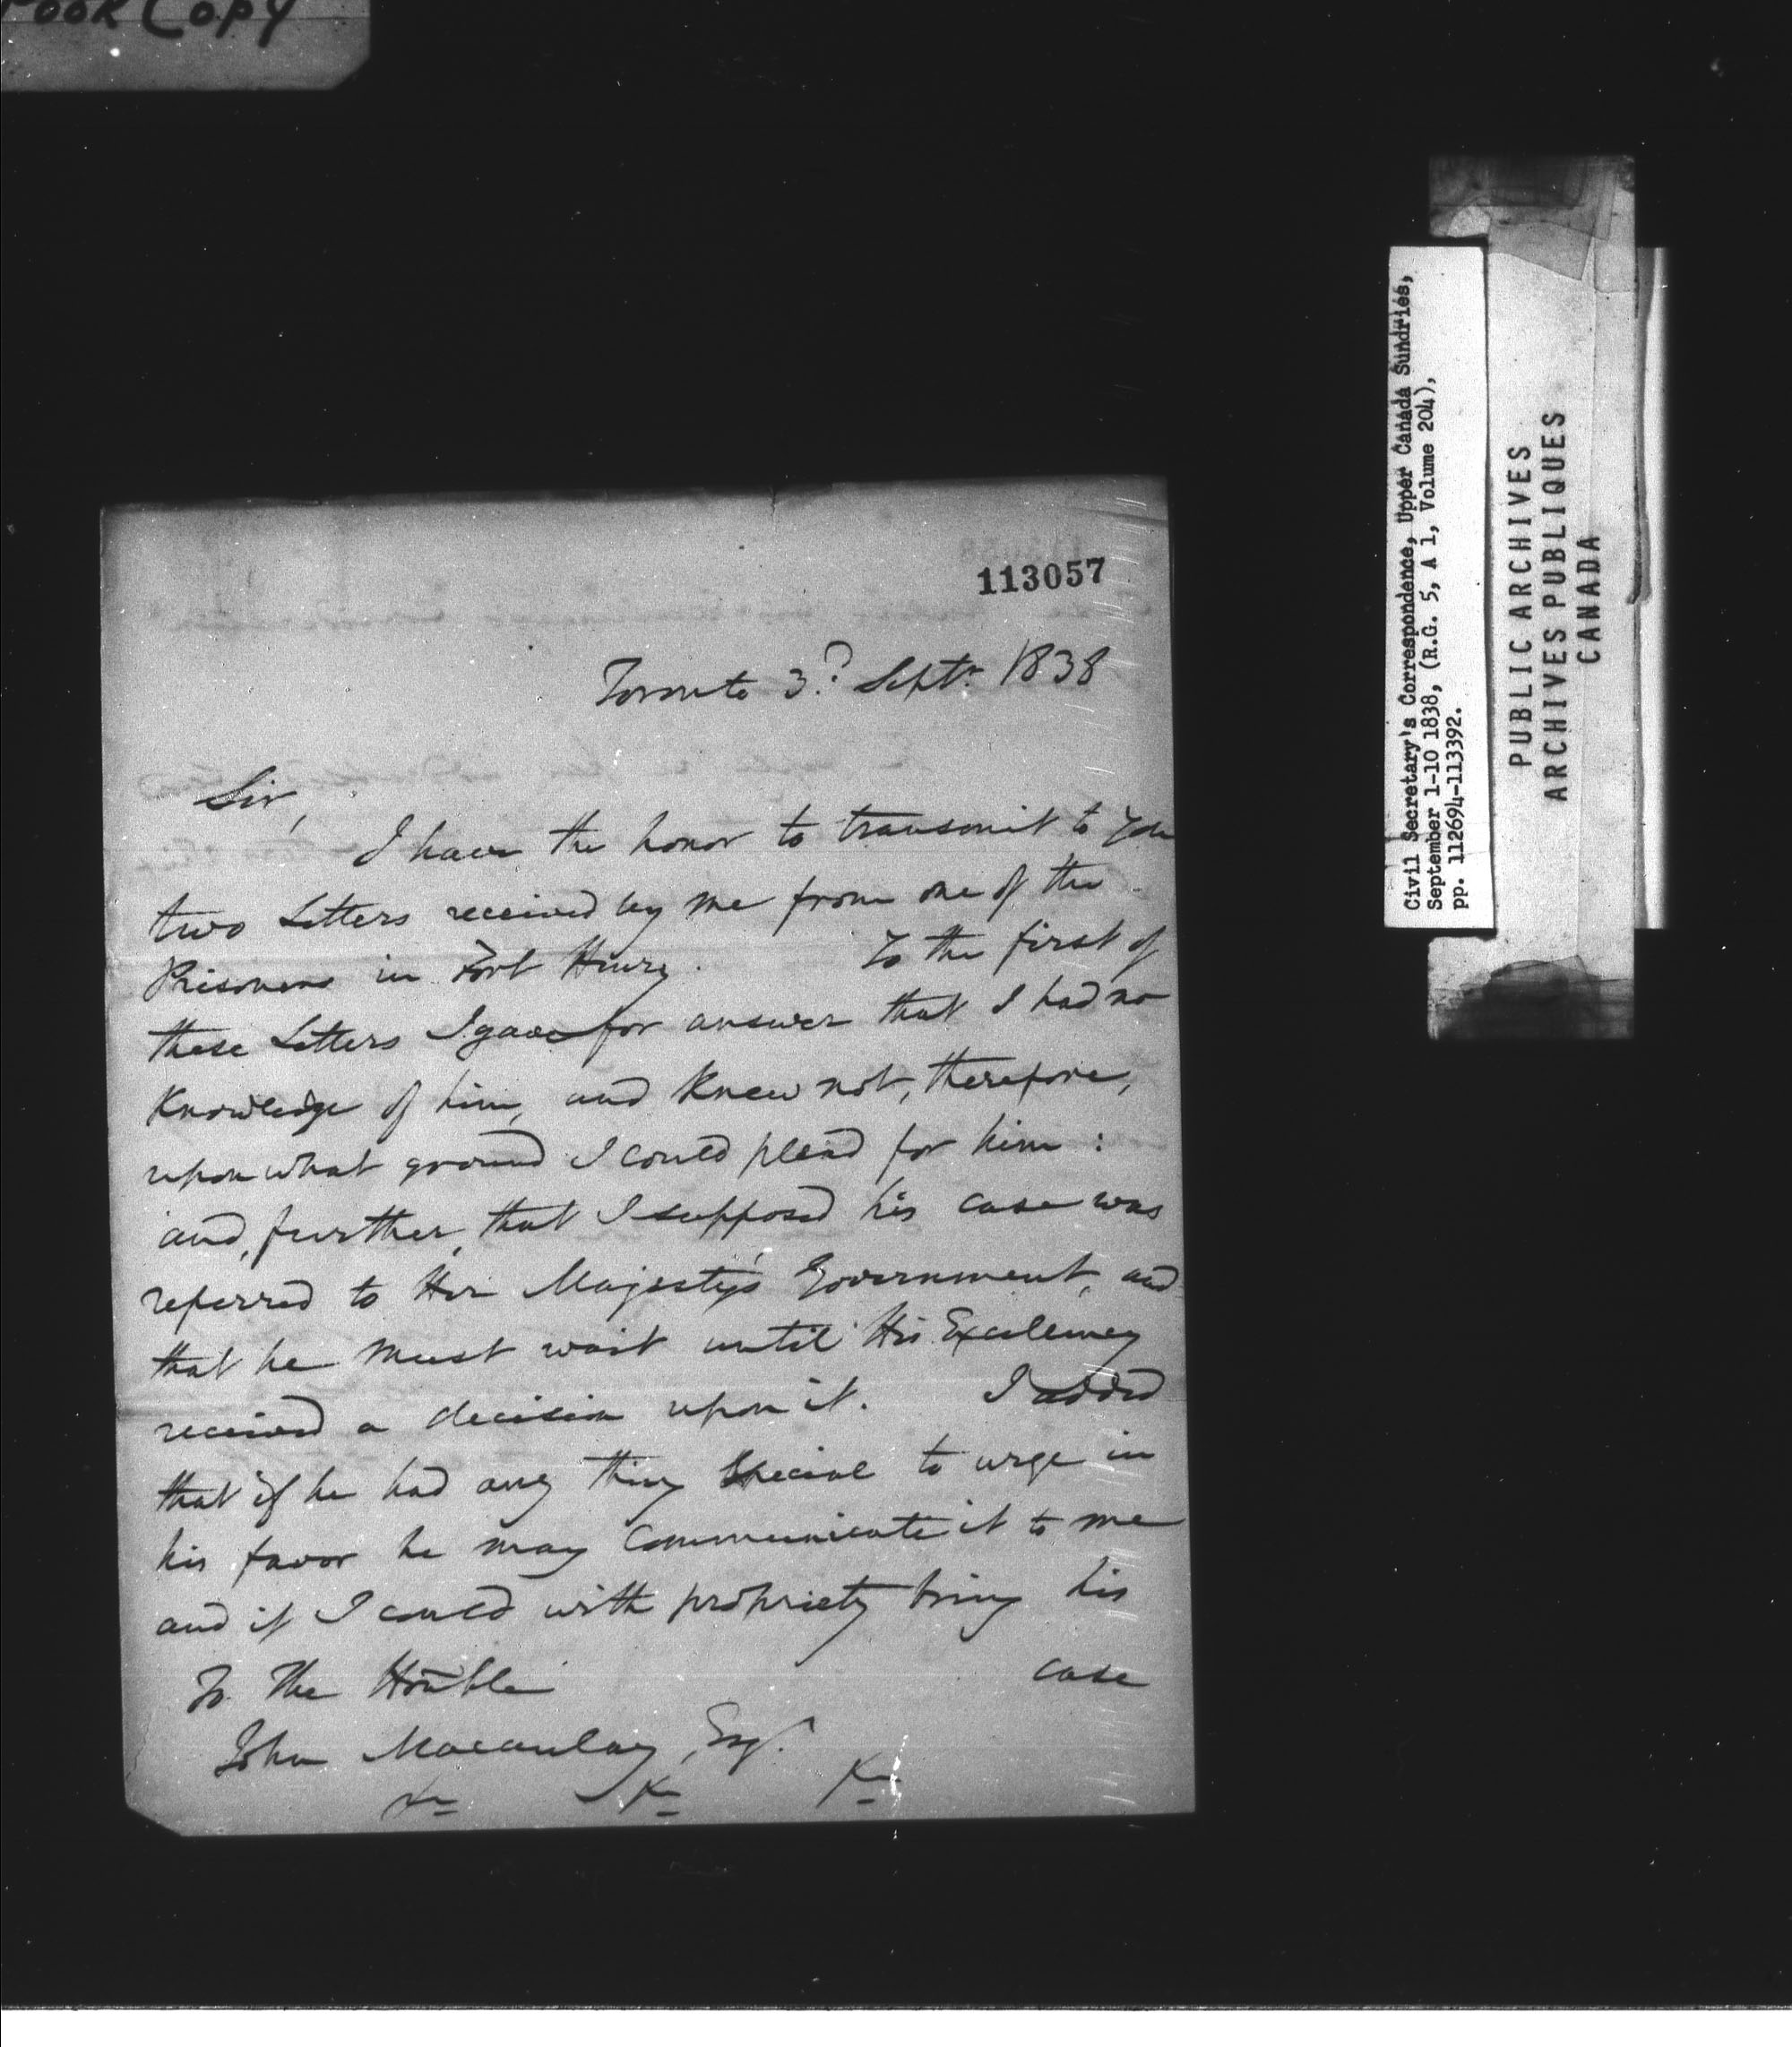 Poor Copy
113057
Toronto 3d Septr 1838
Sir,
I have the honor to transmit to you
two Letters received by me from one of the
Prisoners in Fort Henry. To the first of
these Letters I gave for answer that I had no
Knowledge of him, and Knew not, therefore,
upon what ground I could plead for him:
and, further, that I supposed his case was
referred to Her Majesty's Government, and
that he must wait until His Excellency
received a decision upon it. I added
that if he had any thing special to urge in
his favor he may communicate it to me
and if I could with propriety bring his
case
To The Honble
John Macaulay, Esqr.
&c &c &c
Civil Secretary's Correspondence, Upper Canada Sundries,
September 1-10 1838, (R.G. 5, A 1, Volume 204),
pp. 112694-113392.
PUBLIC ARCHIVES
ARCHIVES PUBLIQUES
CANADA